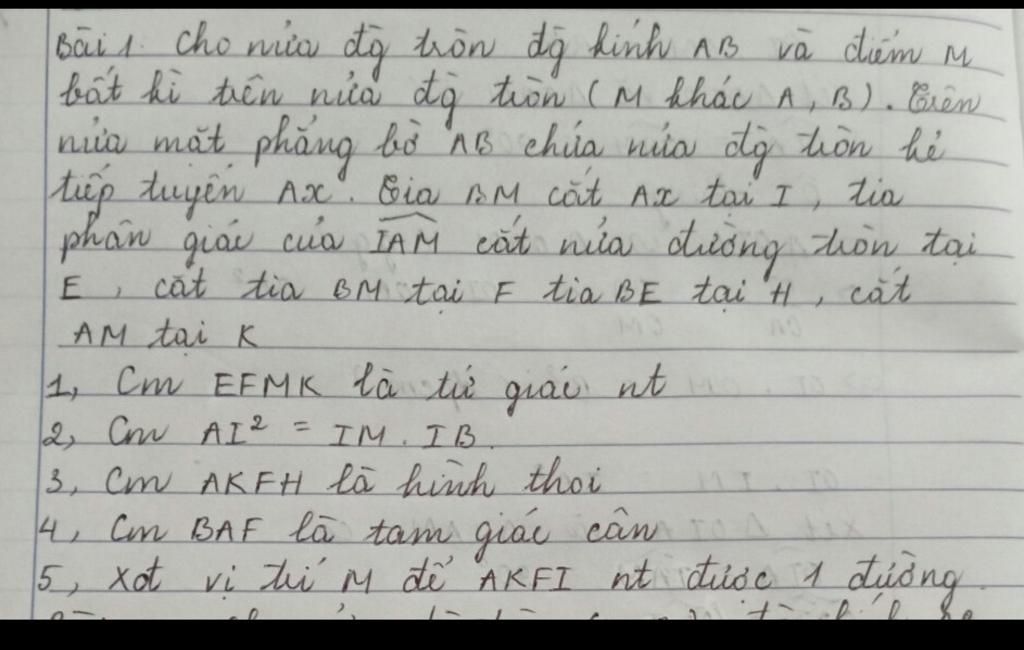 Bài 1. Cho nửa đg tròn đg kính AB và điểm M
bất kì trên nửa đg tròn (M khác A, B). Trên
nửa mặt phẳng bờ AB chứa nửa đg tròn kẻ
tiếp tuyến Ax. Tia BM cắt Ax tại I, tia
phân giác của IAM cắt nửa đường tròn tại
E, cắt tia BM tại F tia BE tại H, cắt
AM tại K
1, Cm EFMK là tứ giác nt
2, Cm AI² = IM. IB.
3, Cm AKFH là hình thoi
4, Cm BAF là tam giác cân
5, Xđt vị trí M để AKFI nt được 1 đường